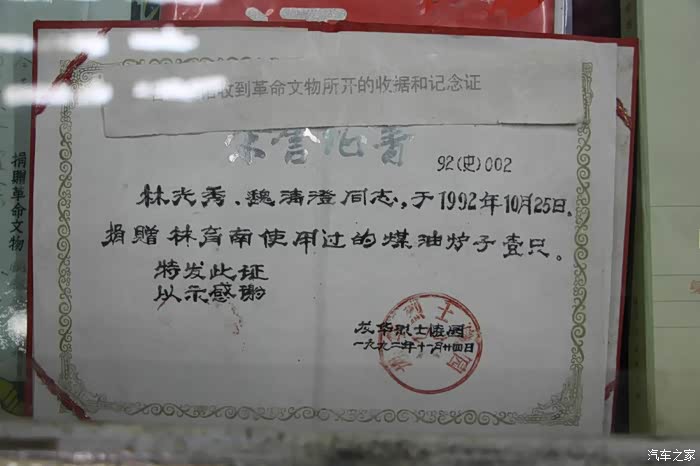 收到革命文物所开的收据和记念证
荣誉证书
92(史)002
林光秀、魏清澄同志,于1992年10月25日。
捐赠林育南使用过的煤油炉子壹只。
特发此证
以示感谢
龙华烈士陵园
一九九二年十一月廿四日
捐赠革命文物
汽车之家